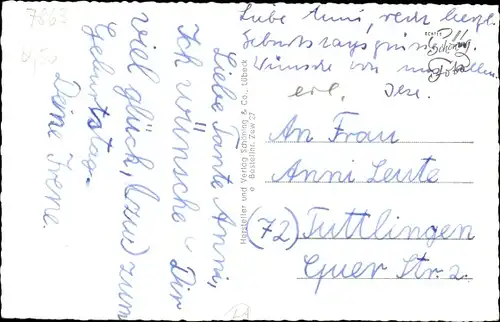 7863
Liebe Tante Anni,
Ich wünsche Dir
viel glück, (zuw) zum
Geburtstag.
Deine Irene.
Liebe Anni, recht herzl.
Geburtstagsgrüsse
Wünsche von uns allen.
ECHTES
Schöning
Foto
Hersteller und Verlag Schöning & Co., Lübeck
Bestellnr. Zew 27
An Frau
Anni Leute
(72) Tuttlingen
Quer Str. 2.